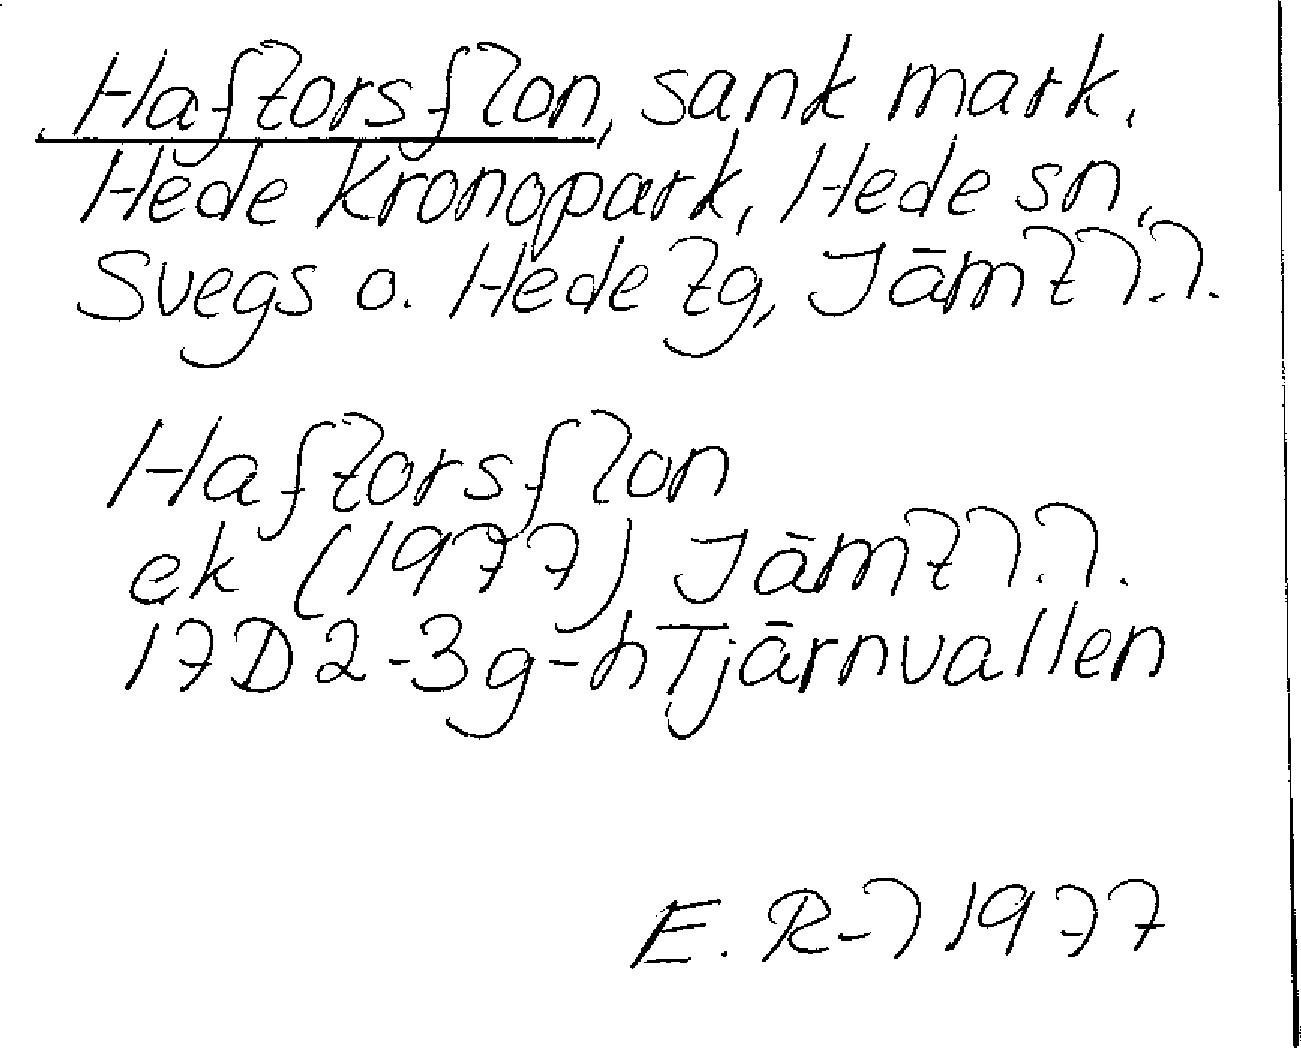 Haftorsflon, sank mark,
Hede Kronopark, Hede sn,
Svegs o. Hede tg, Jämtl.l.
Haftorsflon
ek (1977) Jämtl.l.
17D2-3g-h Tjärnvallen
E. R-l 1977